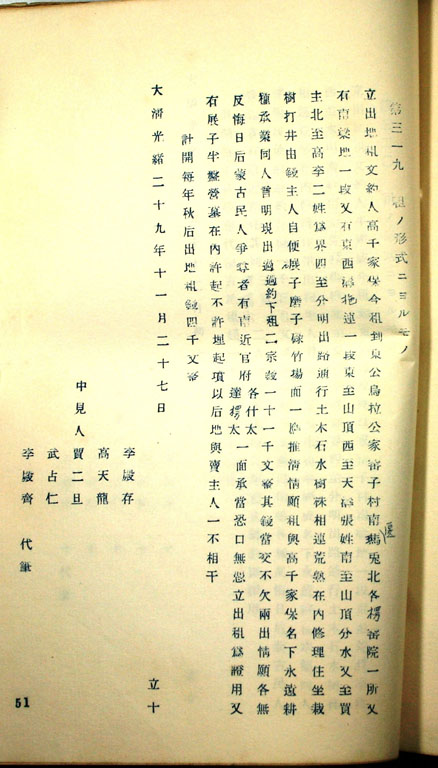 第三一九 租ノ形式ニヨルモノ
立出地租文約人高千家保今租到東公烏拉公家窑子村南兎北各楞窑院一所又
右南梁地一段又右東西溝拖連一段東至山頂西至天溝張姓南至山頂分水又至買
主北至高卒二姓爲界四至分明出路通行土木石水樹株相連荒熟在內修理住坐栽
樹打井由錢主人自便展子磨子碌竹場面一應推淸情願租與高千家保名下永遠耕
種承業同人曾明現出過過約下租二宗錢一十一千文齋其錢當交不欠兩出情願各無
反悔日后蒙古民人爭奪者有南近官府各什太達楞太一面承當恐口無憑立出租爲證用又
右展子半盤營墓在內許起不許埋起項以后地與賣主人一不相干
計開每年秋后出地租錢四千文齋
大淸光緒二十九年十一月二十七日 立十
李殿存
高天龍
中見人 賈二旦
武占仁
李殿齊 代筆
51